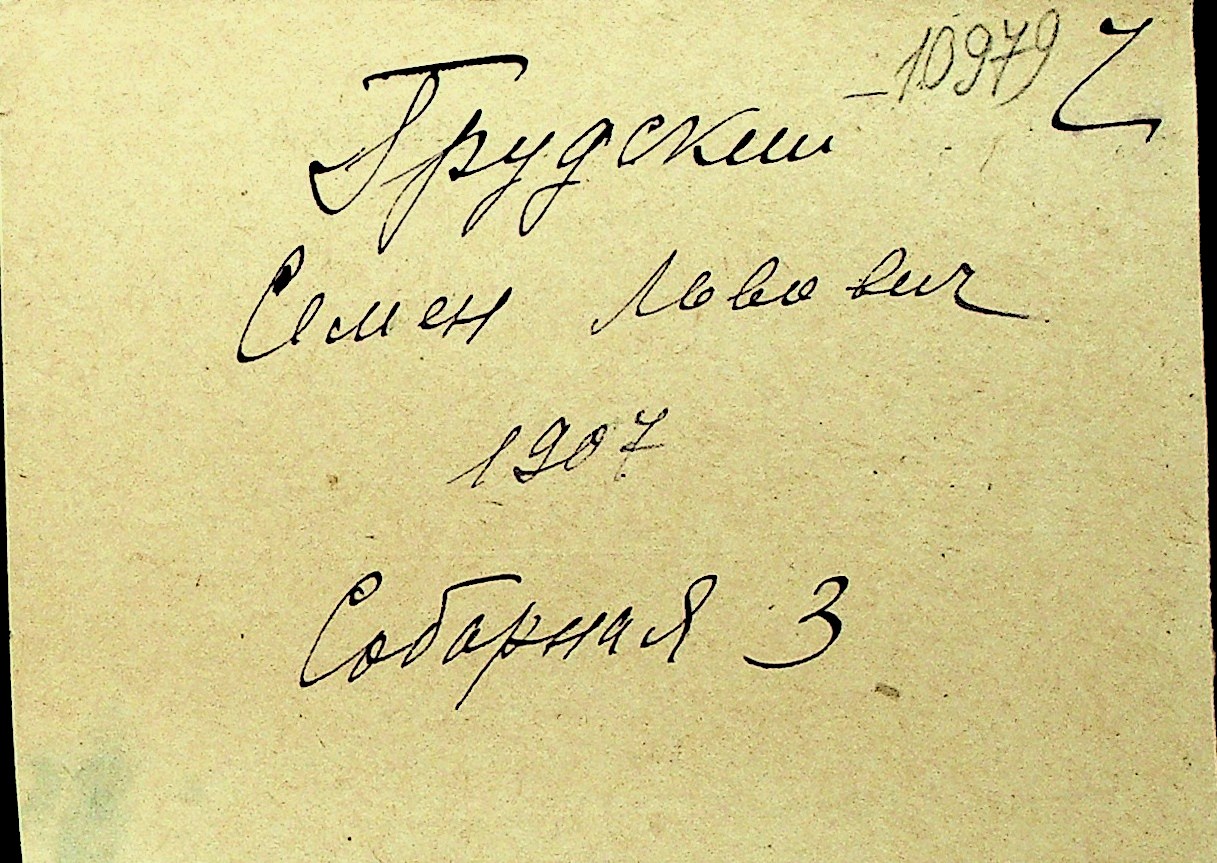 10979
Грудский
Семен Львович
1907
Соборная 3